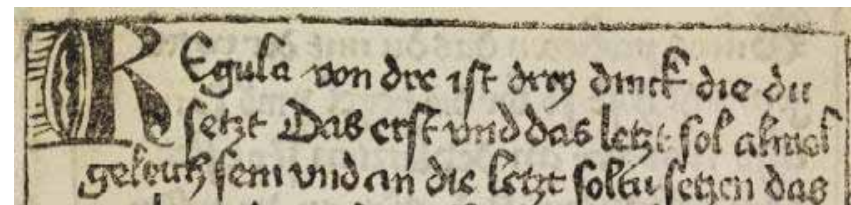 REgula von dre ist drey dinck die du
setzt Das erst vnd das letzt sol almal
geleich sein vnd an die letzt soltu setzen das